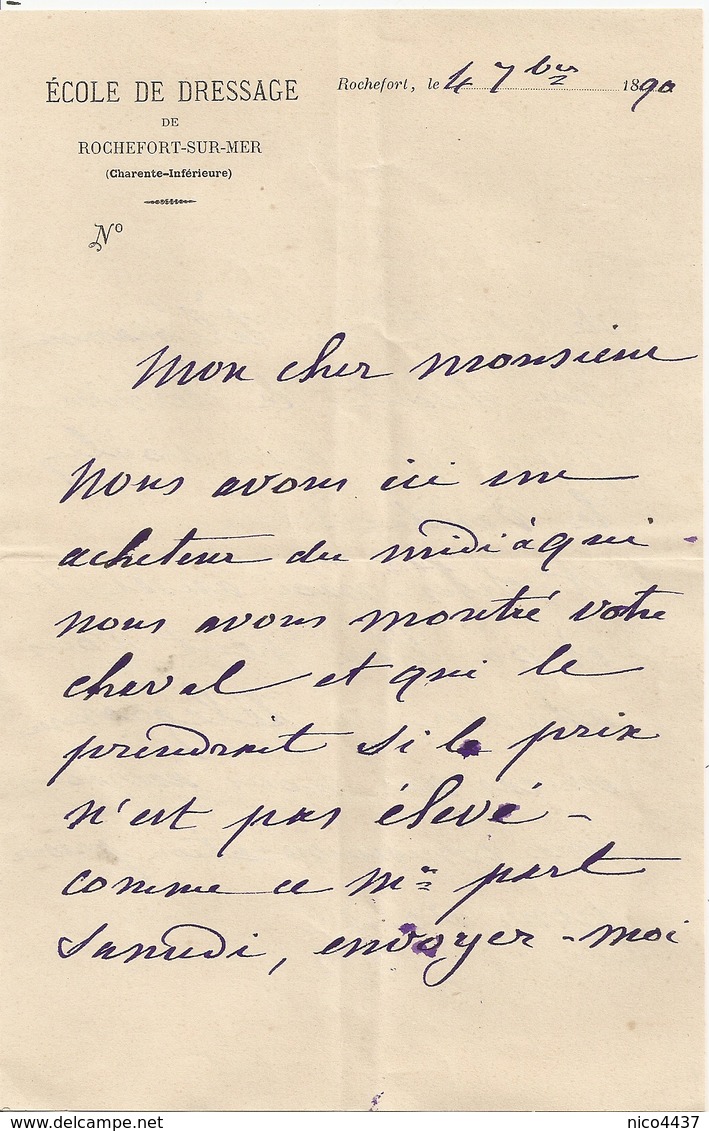 ÉCOLE DE DRESSAGE
DE
ROCHEFORT-SUR-MER
(Charente-Inférieure)
Nº
Rochefort, le 4 7bre 1890
Mon cher Monsieur
Nous avons ici un
acheteur du midi à qui
nous avons montré votre
cheval et qui le
prendrait si le prix
n'est pas élevé -
comme ce Mr part
Samedi, envoyez-moi
delcampe.net
nico4437